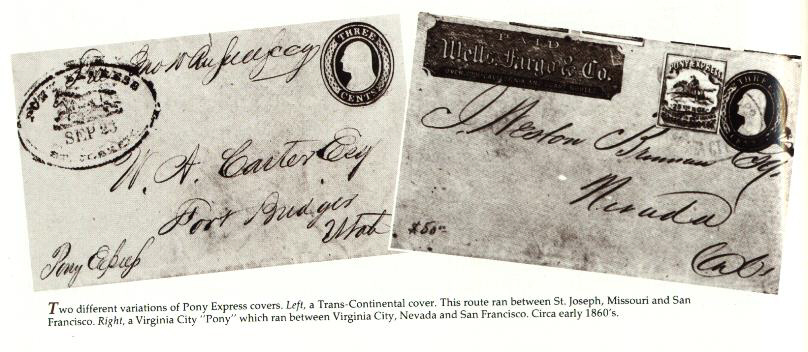 PONY EXPRESS
SEP 23
ST. JOSEPH
THREE
CENTS
W. A. Carter Esq
Fort Bridger
Utah
Pony Express
PAID
Wells, Fargo & Co.
PONY EXPRESS
THREE
J. Weston Brennan Esq.
Nevada
Cal
Two different variations of Pony Express covers. Left, a Trans-Continental cover. This route ran between St. Joseph, Missouri and San
Francisco. Right, a Virginia City "Pony" which ran between Virginia City, Nevada and San Francisco. Circa early 1860's.